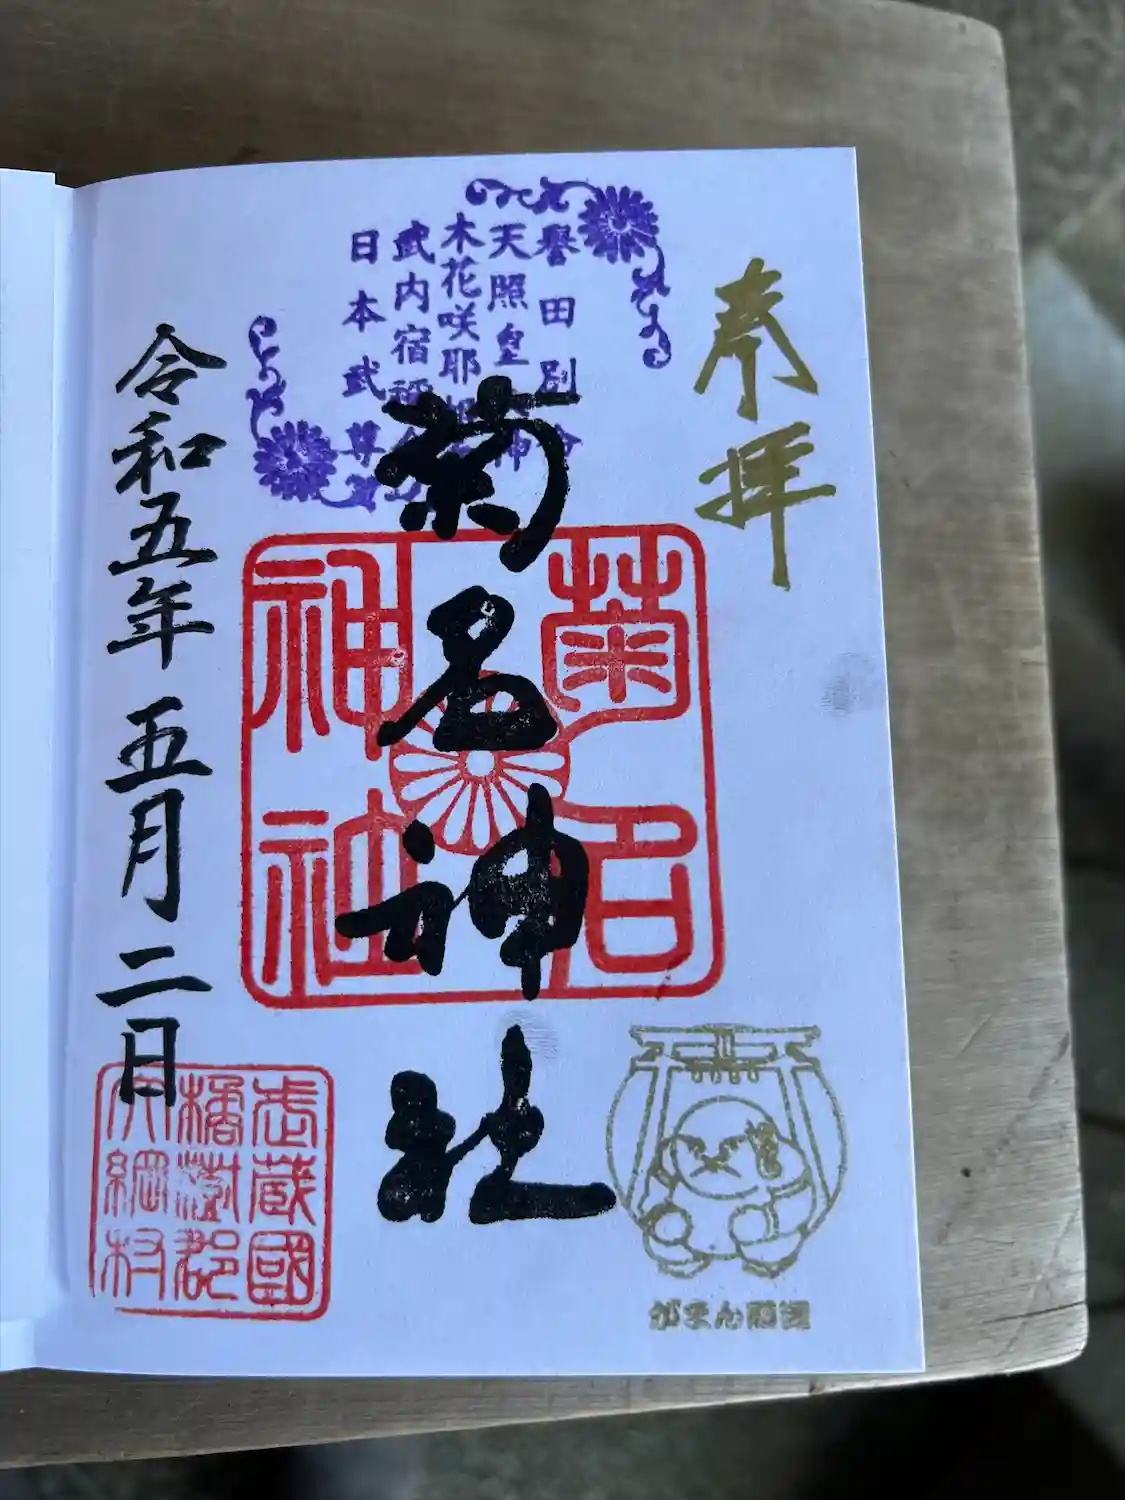 奉拝
誉田別命
天照皇大神
木花咲耶姫命
武内宿禰命
日本武尊
菊名神社
菊名
神社
令和五年五月二日
武蔵國
橘樹郡
大綱村
がまん様